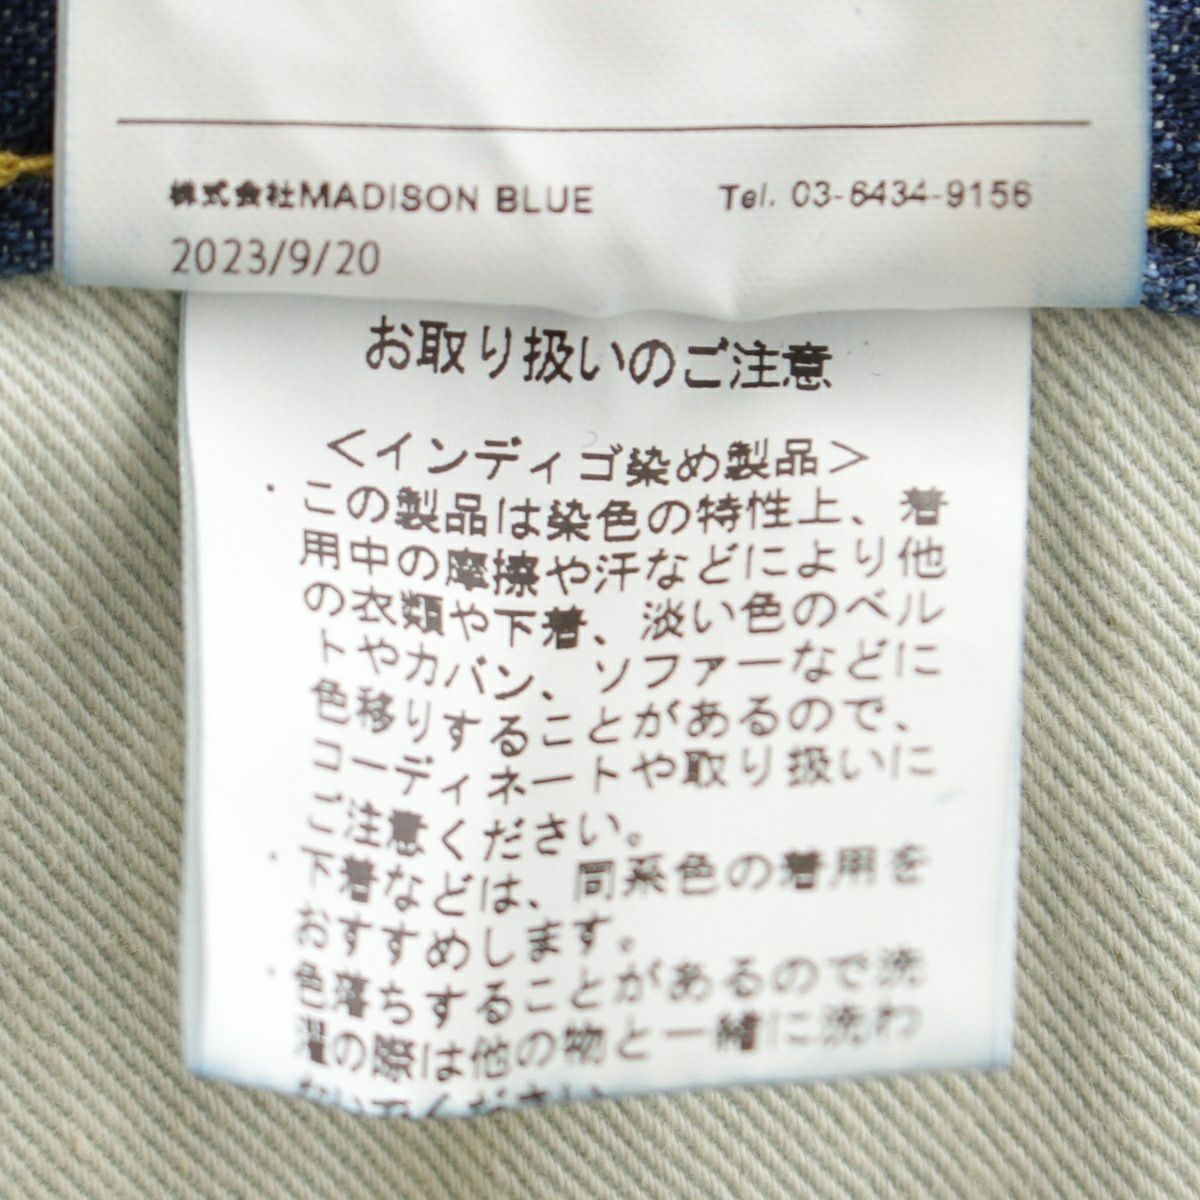 株式会社MADISON BLUE Tel. 03-6434-9156
2023/9/20
お取り扱いのご注意
<インディゴ染め製品>
・この製品は染色の特性上、着
用中の摩擦や汗などにより他
の衣類や下着、淡い色のベル
トやカバン、ソファーなどに
色移りすることがあるので、
コーディネートや取り扱いに
ご注意ください。
・下着などは、同系色の着用を
おすすめします。
・色落ちすることがあるので洗
濯の際は他の物と一緒に洗わ
ないでください